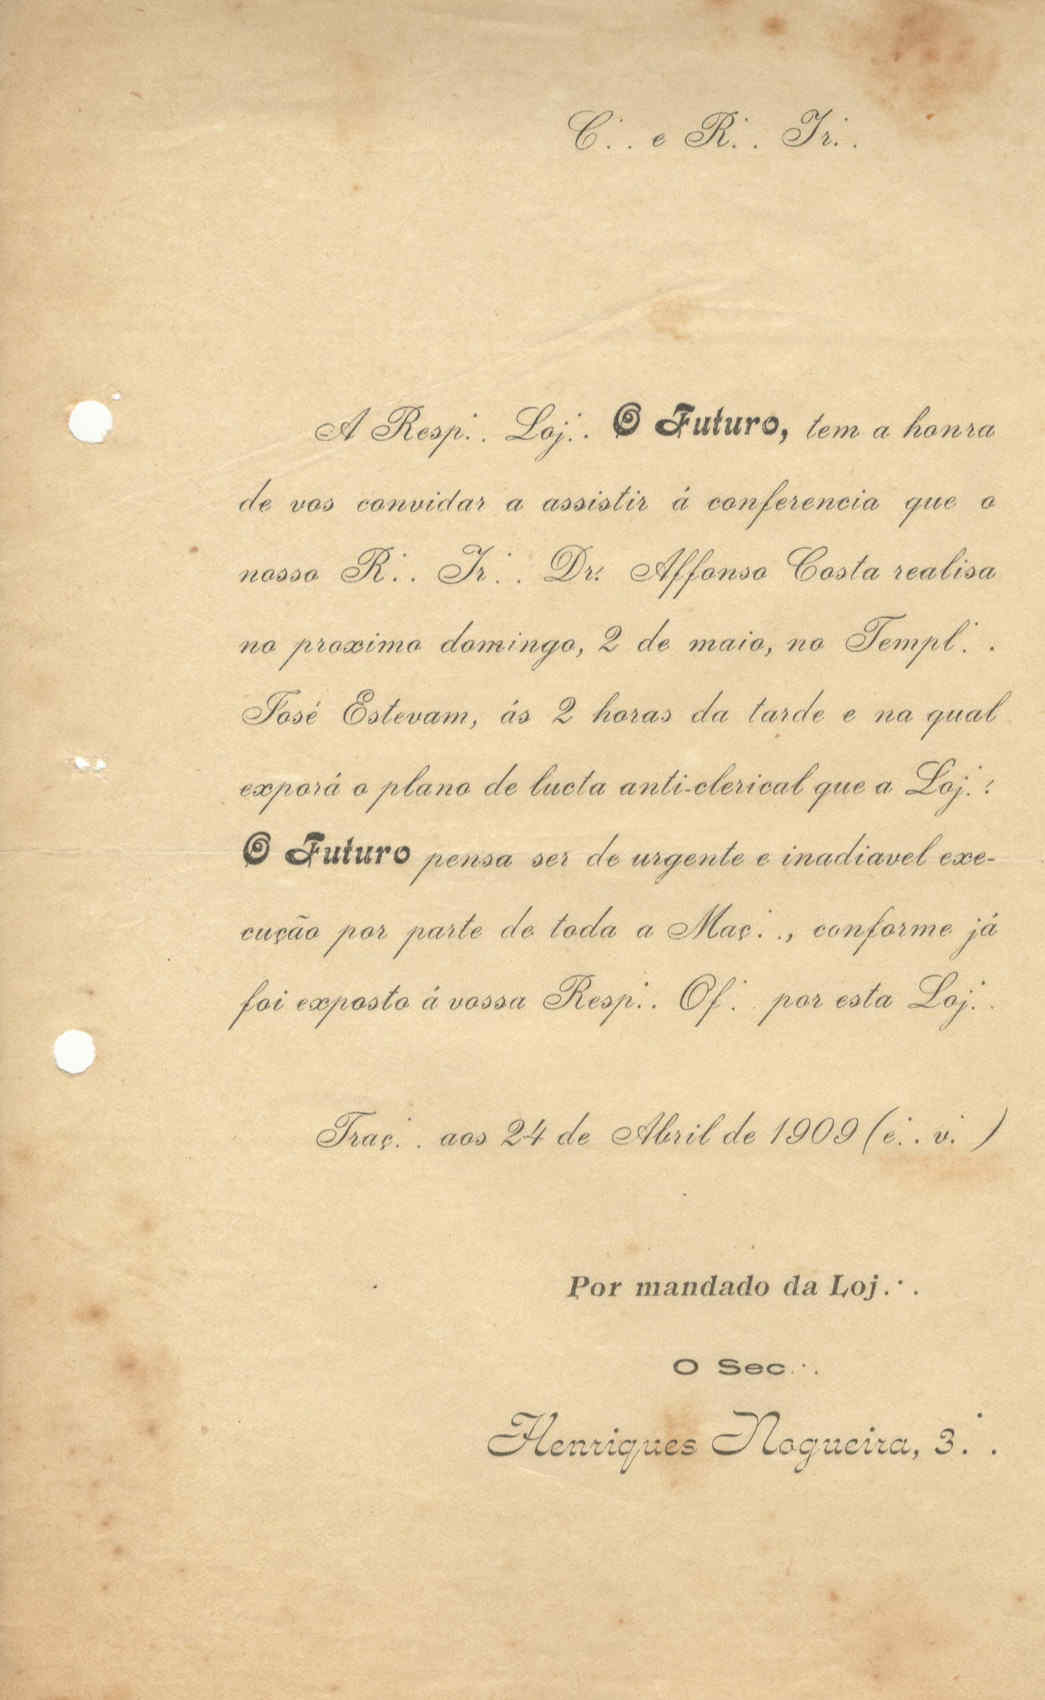 C∴ e R∴ Ir∴
A Resp∴ Loj∴ O Futuro, tem a honra
de vos convidar a assistir á conferencia que o
nosso R∴ Ir∴ Dr. Affonso Costa realisa
no proximo domingo, 2 de maio, no Templ∴
José Estevam, ás 2 horas da tarde e na qual
exporá o plano de lucta anti-clerical que a Loj∴
O Futuro pensa ser de urgente e inadiavel exe-
cução por parte de toda a Maç∴, conforme já
foi exposto á vossa Resp∴ Of∴ por esta Loj∴
Traç∴ aos 24 de Abril de 1909 (e∴ v∴)
Por mandado da Loj∴
O Sec∴
Henriques Nogueira, 3∴